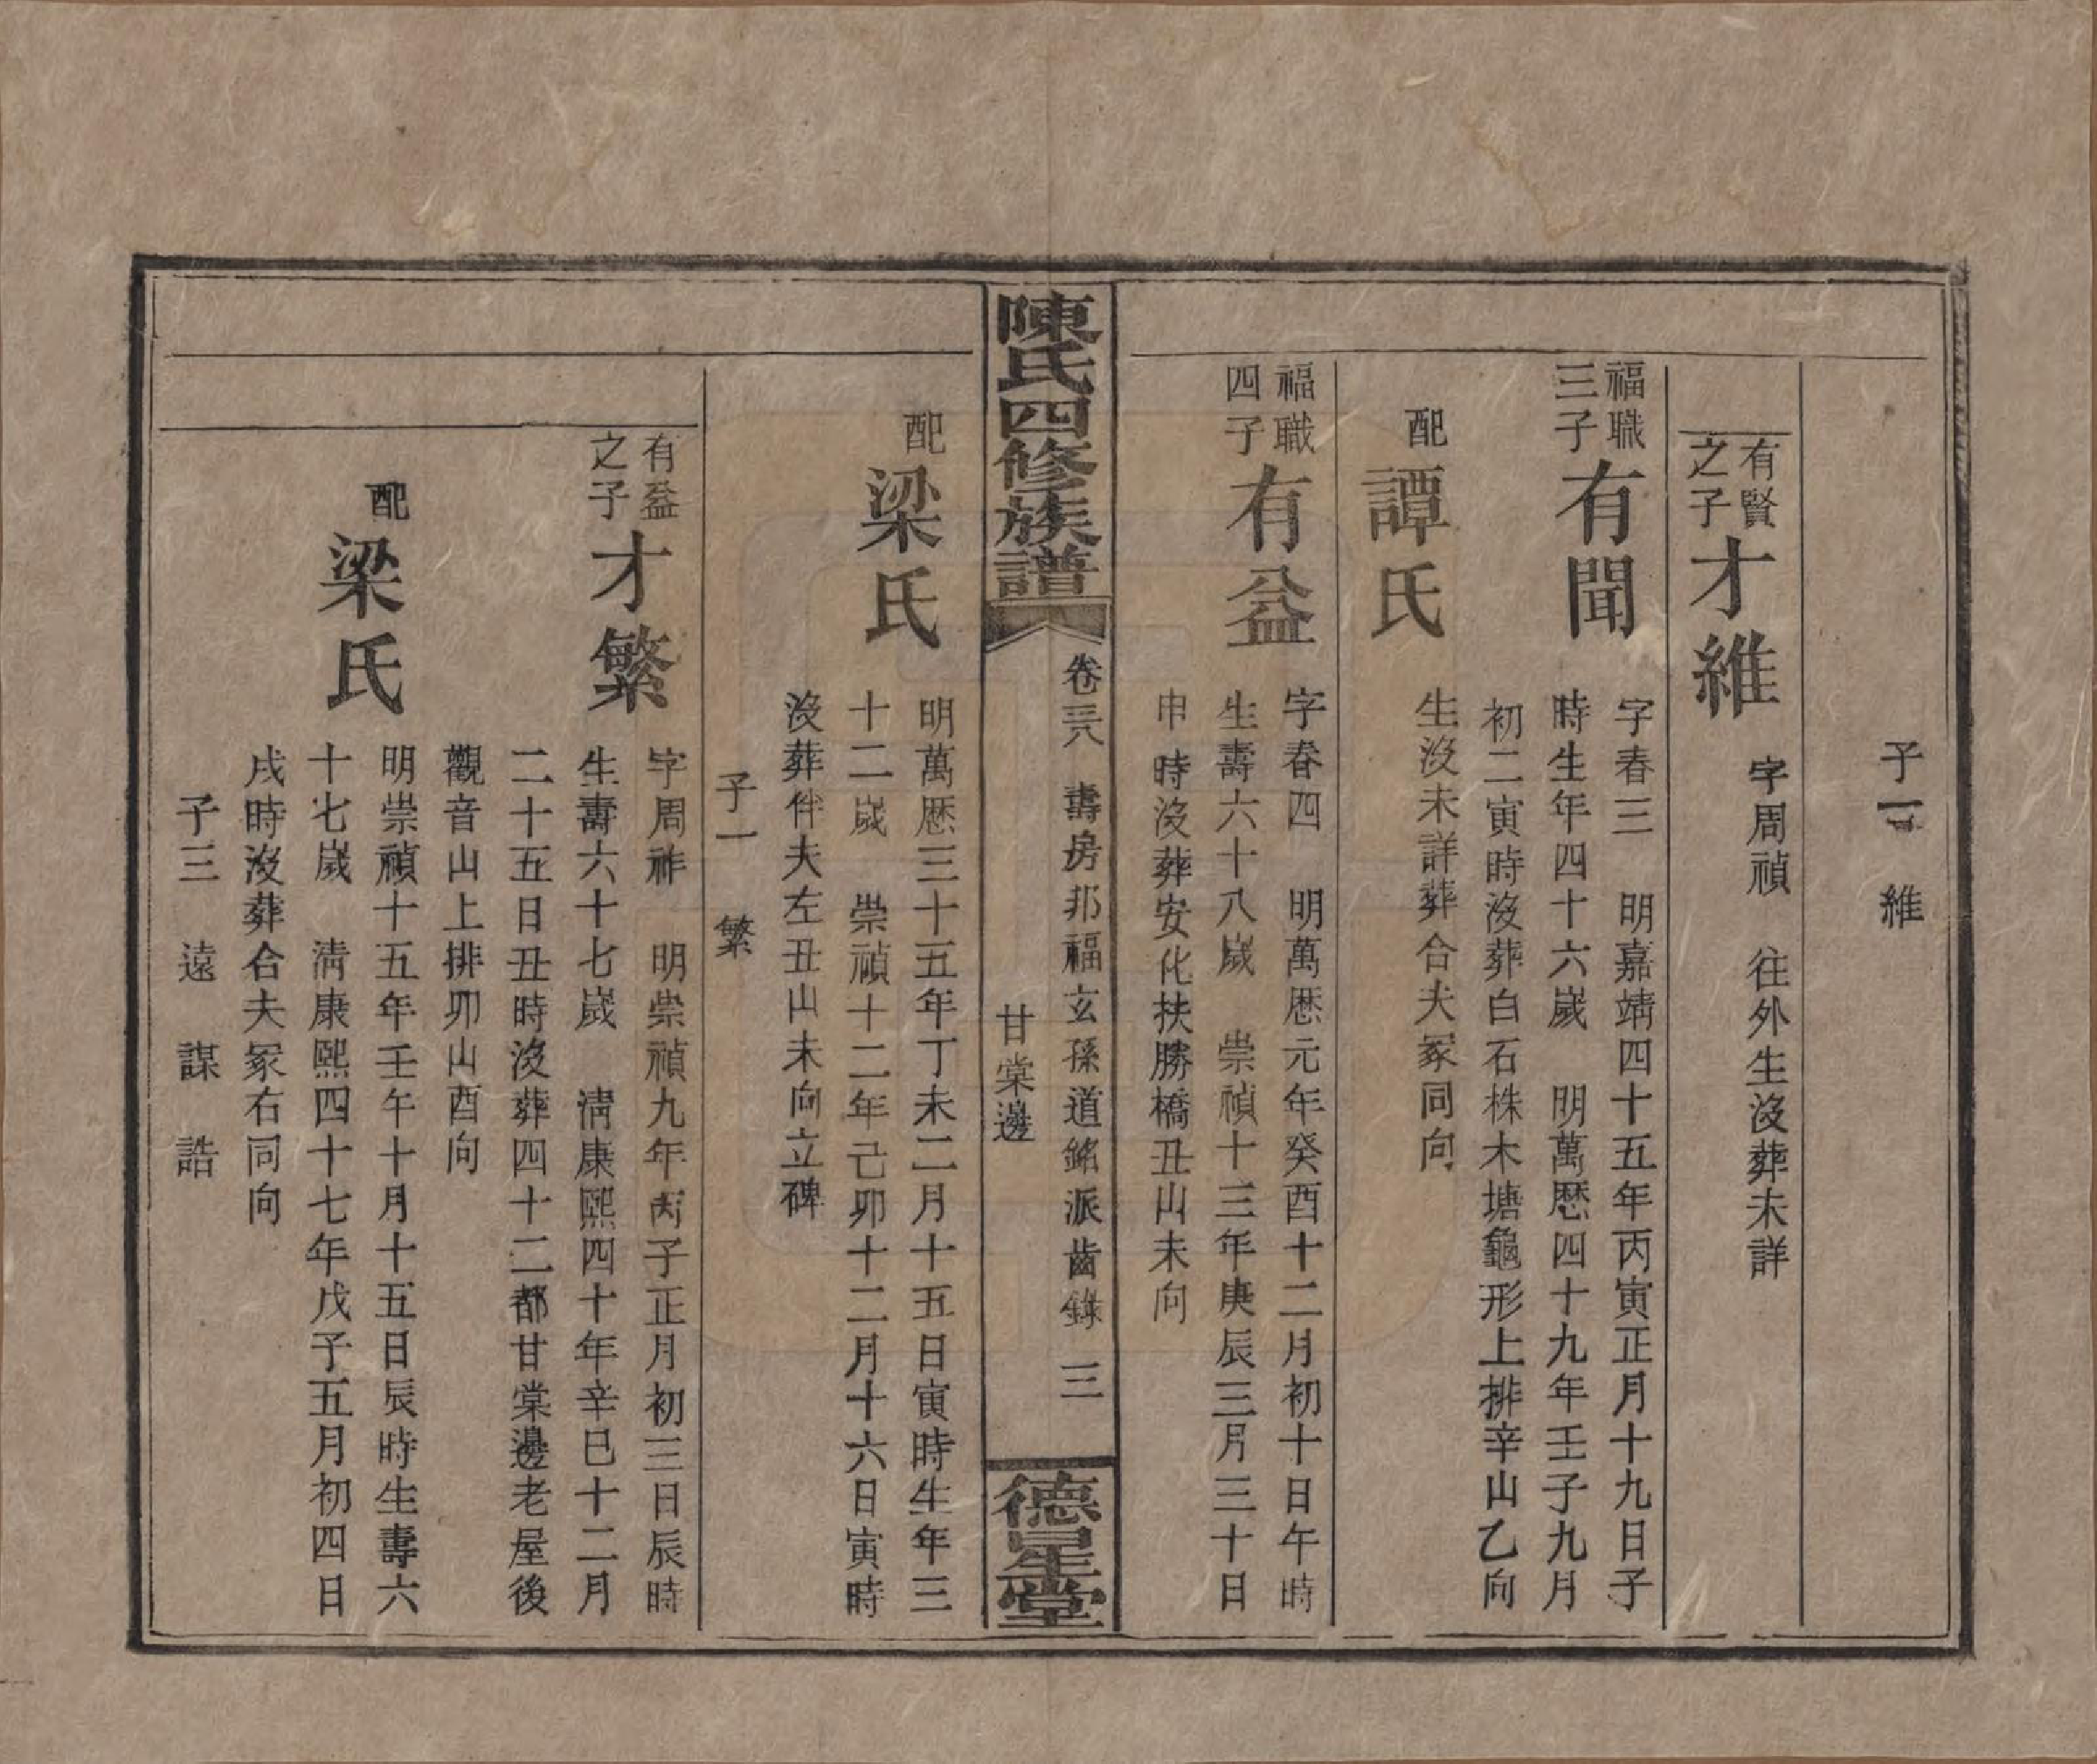 子一 維
有賢之子
才維
字周禎 往外生沒葬未詳
福職三子
有聞
字春三 明嘉靖四十五年丙寅正月十九日子
時生年四十六嵗 明萬厯四十九年壬子九月
初二寅時沒葬白石株木塘龜形上排辛山乙向
配
譚氏
生沒未詳葬合夫冢同向
福職四子
有益
字春四 明萬厯元年癸酉十二月初十日午時
生壽六十八嵗 崇禎十三年庚辰三月三十日
申時沒葬安化扶勝橋丑山未向
陳氏四修族譜
卷三八 壽房邦福玄孫道銘派齒錄 三
甘棠邊
德星堂
配
梁氏
明萬厯三十五年丁未二月十五日寅時生年三
十二嵗 崇禎十二年己卯十二月十六日寅時
沒葬伴夫左丑山未向立碑
子一 繁
有益之子
才繁
字周祚 明崇禎九年丙子正月初三日辰時
生壽六十七嵗 清康熙四十年辛巳十二月
二十五日丑時沒葬四十二都甘棠邊老屋後
觀音山上排卯山酉向
配
梁氏
明崇禎十五年壬午十月十五日辰時生壽六
十七嵗 清康熙四十七年戊子五月初四日
戌時沒葬合夫冢右同向
子三 遠 謀 誥